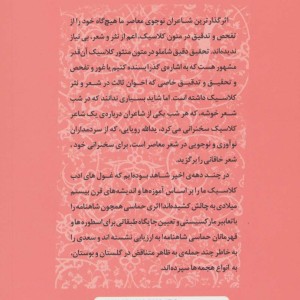 اثرگذارترین شاعران نوجوی معاصر ما هیچ‌گاه خود را از
تفحص و تدقیق در متون کلاسیک، اعم از نثر و شعر، بی نیاز
ندیده‌اند. تحقیق دقیق شاملو در متون منثور کلاسیک آن‌قدر
مشهور هست که به اشاره‌ی گذرا بسنده کنیم یا غور و تفحص
و تحقیق و تدقیق خاصی که اخوان ثالث در شعر و نثر
کلاسیک داشته است. اما شاید بسیاری ندانند که در شب
شعر خوشه، که هر شب یکی از شاعران درباره‌ی یک شاعر
کلاسیک سخنرانی می‌کرد، یدالله رویایی، که از سردمداران
نوآوری و نوجویی در شعر معاصر است، برای سخنرانی خود،
شعر خاقانی را برگزید.
در چند دهه‌ی اخیر شاهد بوده‌ایم که غول های ادب
کلاسیک ما را بر اساس آموزه‌ها و اندیشه‌های قرن بیستم
میلادی به چالش کشیده‌اند؛ اثری حماسی همچون شاهنامه را
با تعابیر مارکسیستی و تعیین جایگاه طبقاتی برای اسطوره‌ها و
قهرمانان حماسی شاهنامه به ارزیابی نشسته اند و سعدی را
به خاطر چند جمله‌ی به ظاهر متناقض در گلستان و بوستان،
به انواع هجمه‌ها سپرده‌اند.